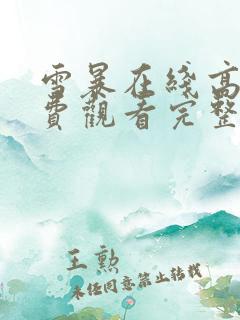 雪暴在綫高
費觀看完整
王勲
未经同意禁止转载